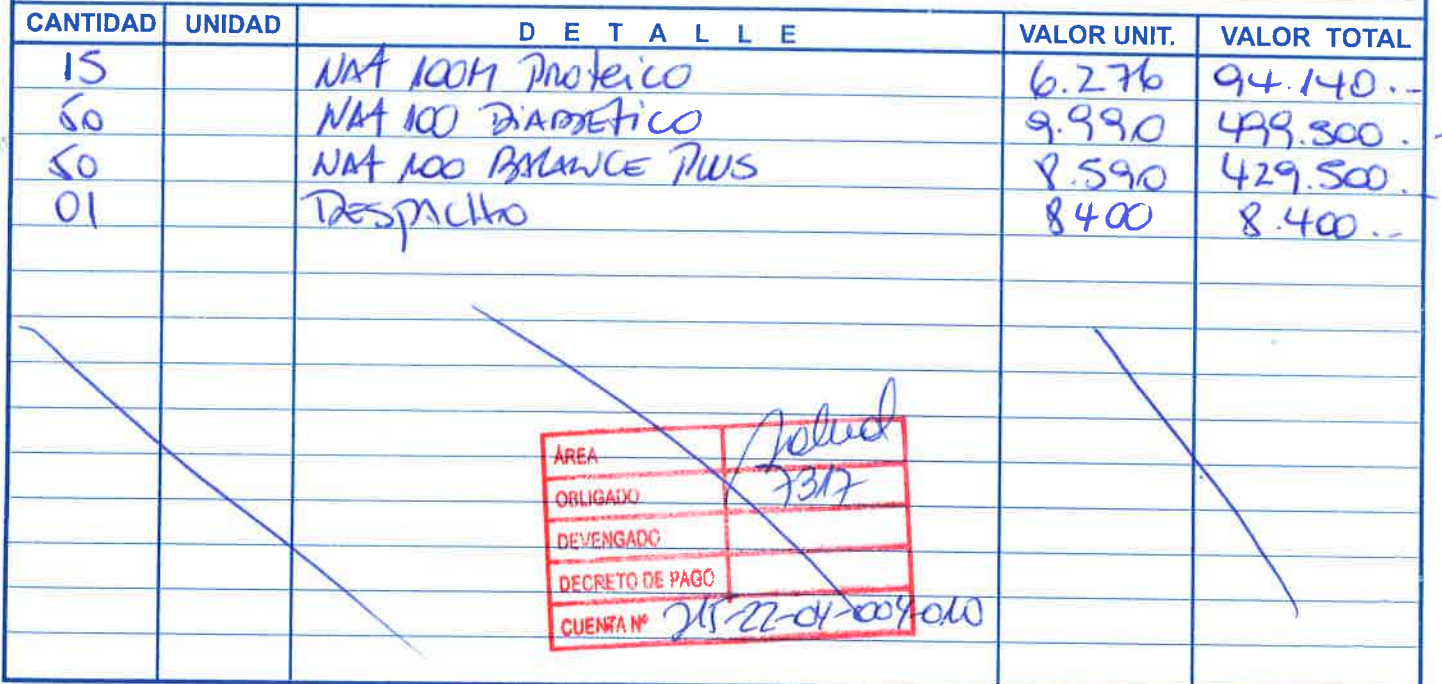 CANTIDAD UNIDAD DETALLE VALOR UNIT. VALOR TOTAL
15 NAT 100H Proteico 6.276 94.140.-
50 NAT 100 DIABETICO 9.990 499.500.
50 NAT 100 BALANCE PLUS 8.590 429.500.
01 DESPACHO 8400 8.400.-
ÁREA Salud
OBLIGADO 7317
DEVENGADO
DECRETO DE PAGO
CUENTA Nº 215-22-04-004-010